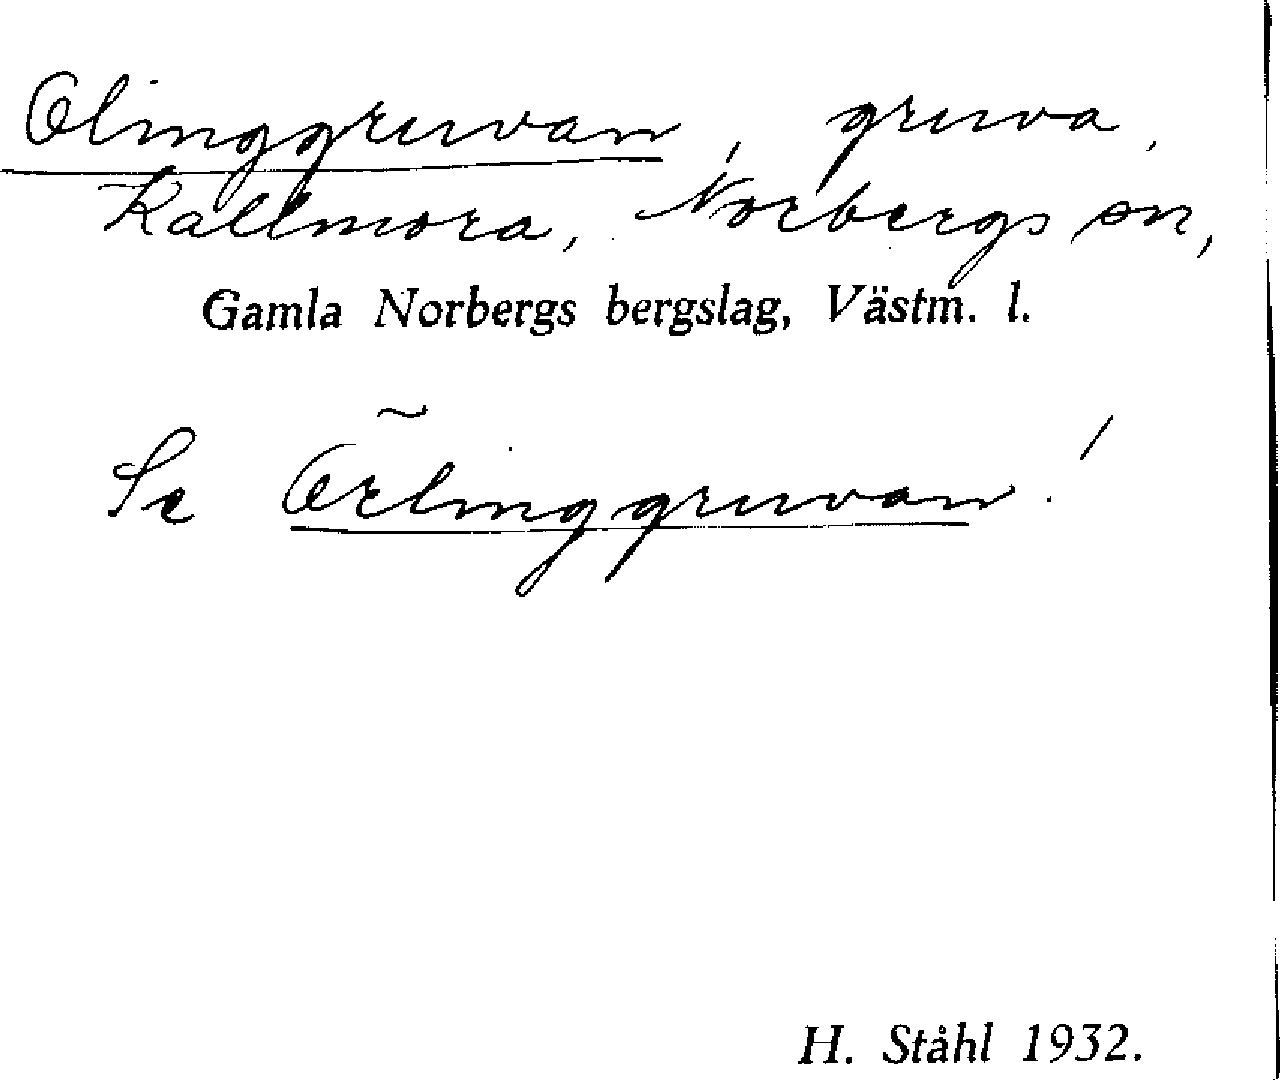 Olinggruvan, gruva,
Kallmora, Norbergs sn,
Gamla Norbergs bergslag, Västm. l.
Se Örlinggruvan!
H. Ståhl 1932.